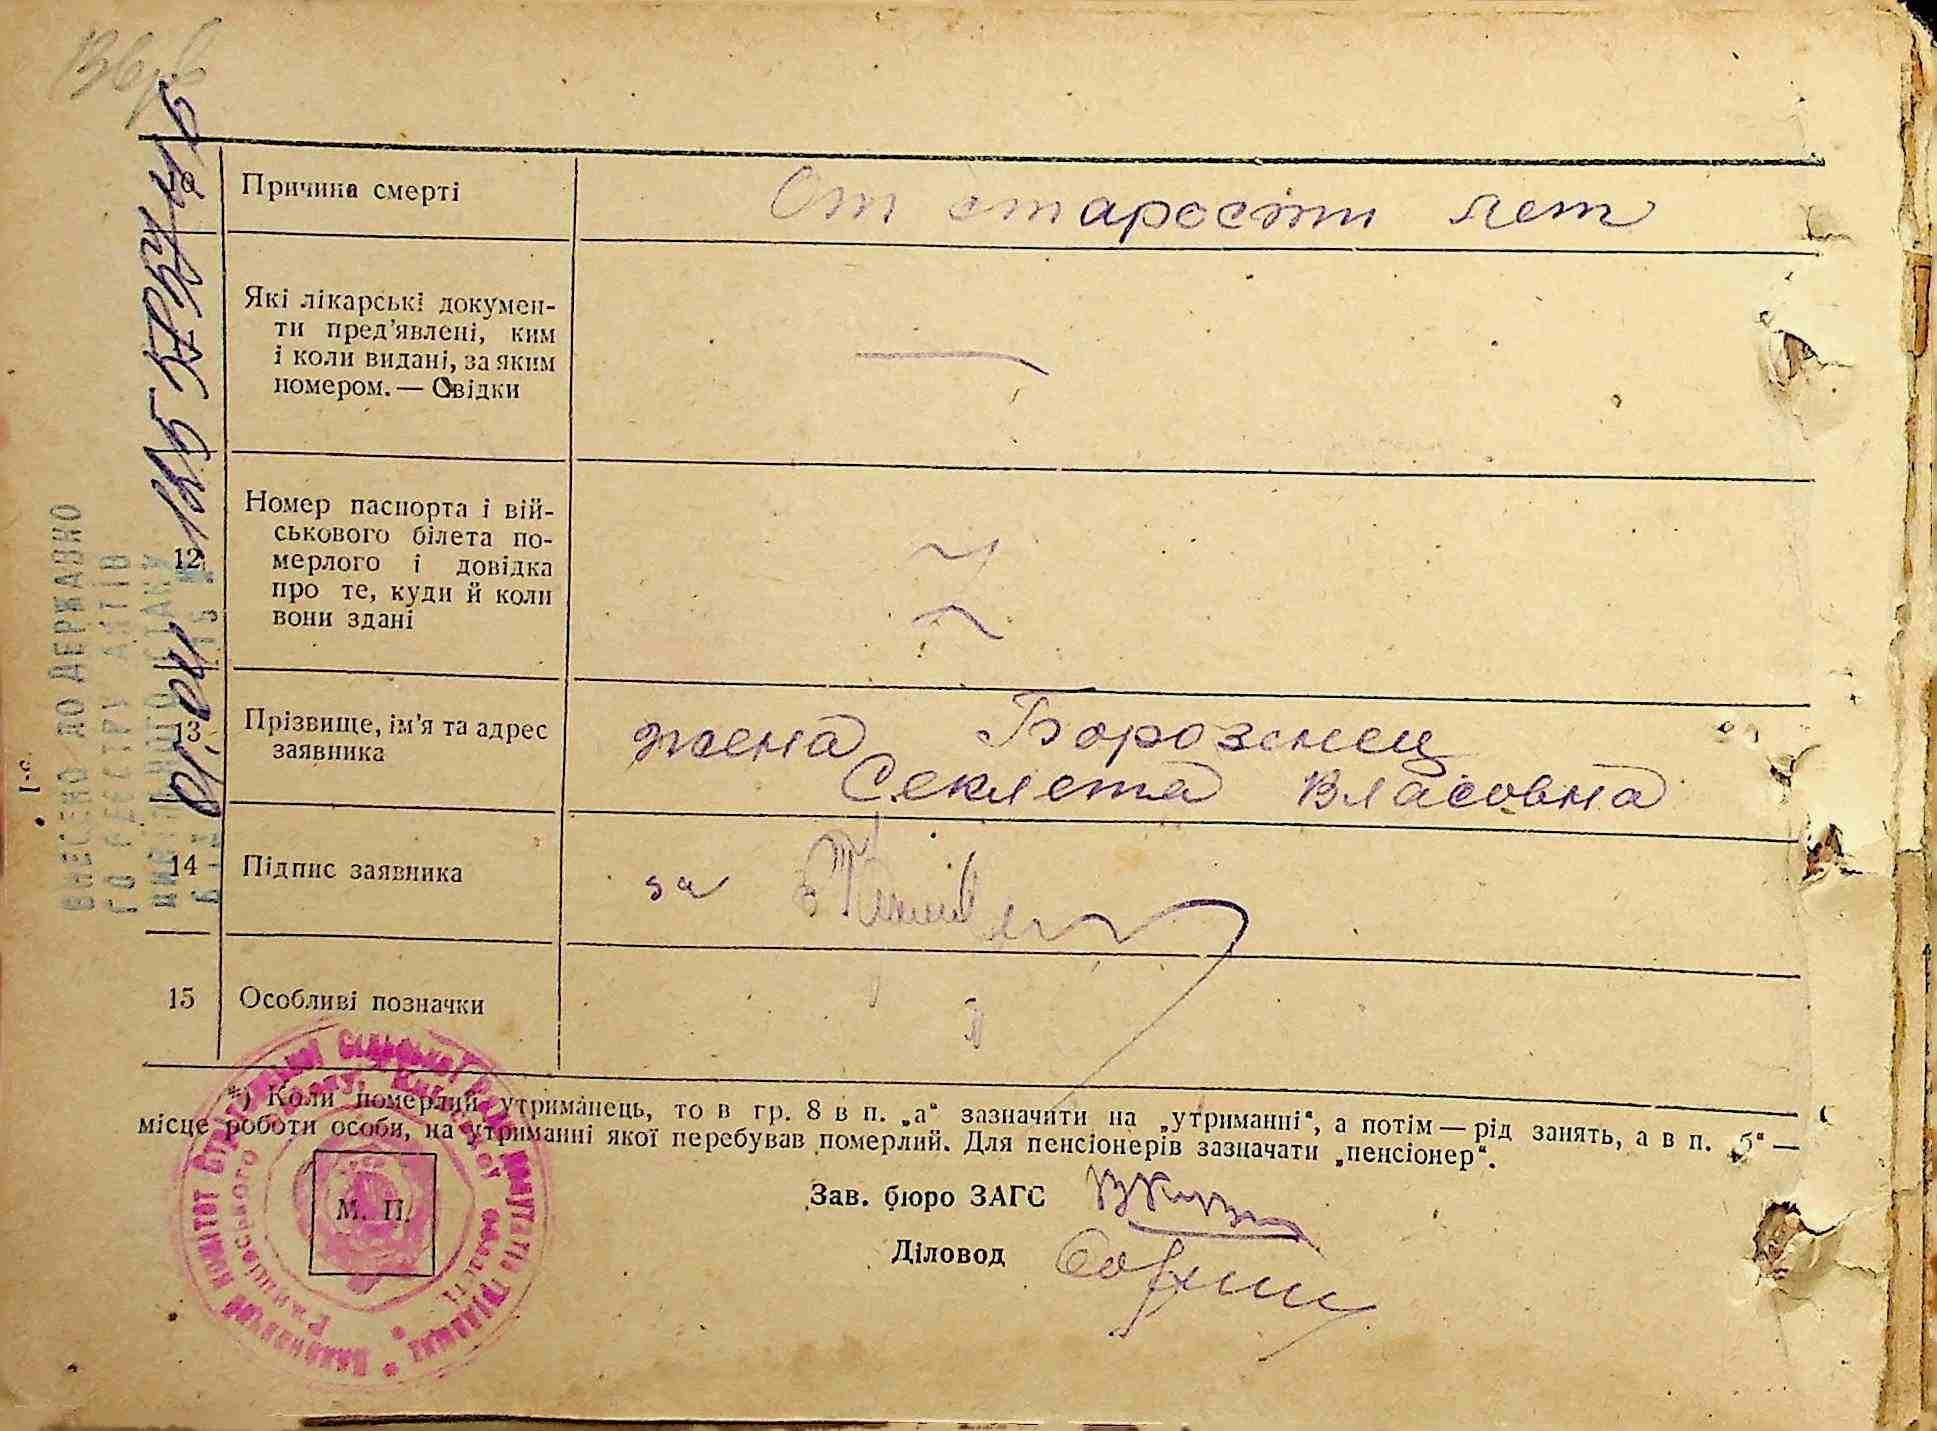 Причина смерті
От старости лет
Які лікарські докумен-
ти пред’явлені, ким
і коли видані, за яким
номером. — Свідки
—
12
Номер паспорта і вій-
ськового білета по-
мерлого і довідка
про те, куди й коли
вони здані
13
Прізвище, ім’я та адрес
заявника
жена Борозенец
Секлета Власовна
14
Підпис заявника
за
15
Особливі позначки
*) Коли померлий утриманець, то в гр. 8 в п. „а“ зазначити на „утриманні“, а потім — рід занять, а в п. „б“ —
місце роботи особи, на утриманні якої перебував померлий. Для пенсіонерів зазначати „пенсіонер“.
М. П.
Зав. бюро ЗАГС
Діловод
ВНЕСЕНО ДО ДЕРЖАВНО
ГО РЕЄСТРУ АКТІВ